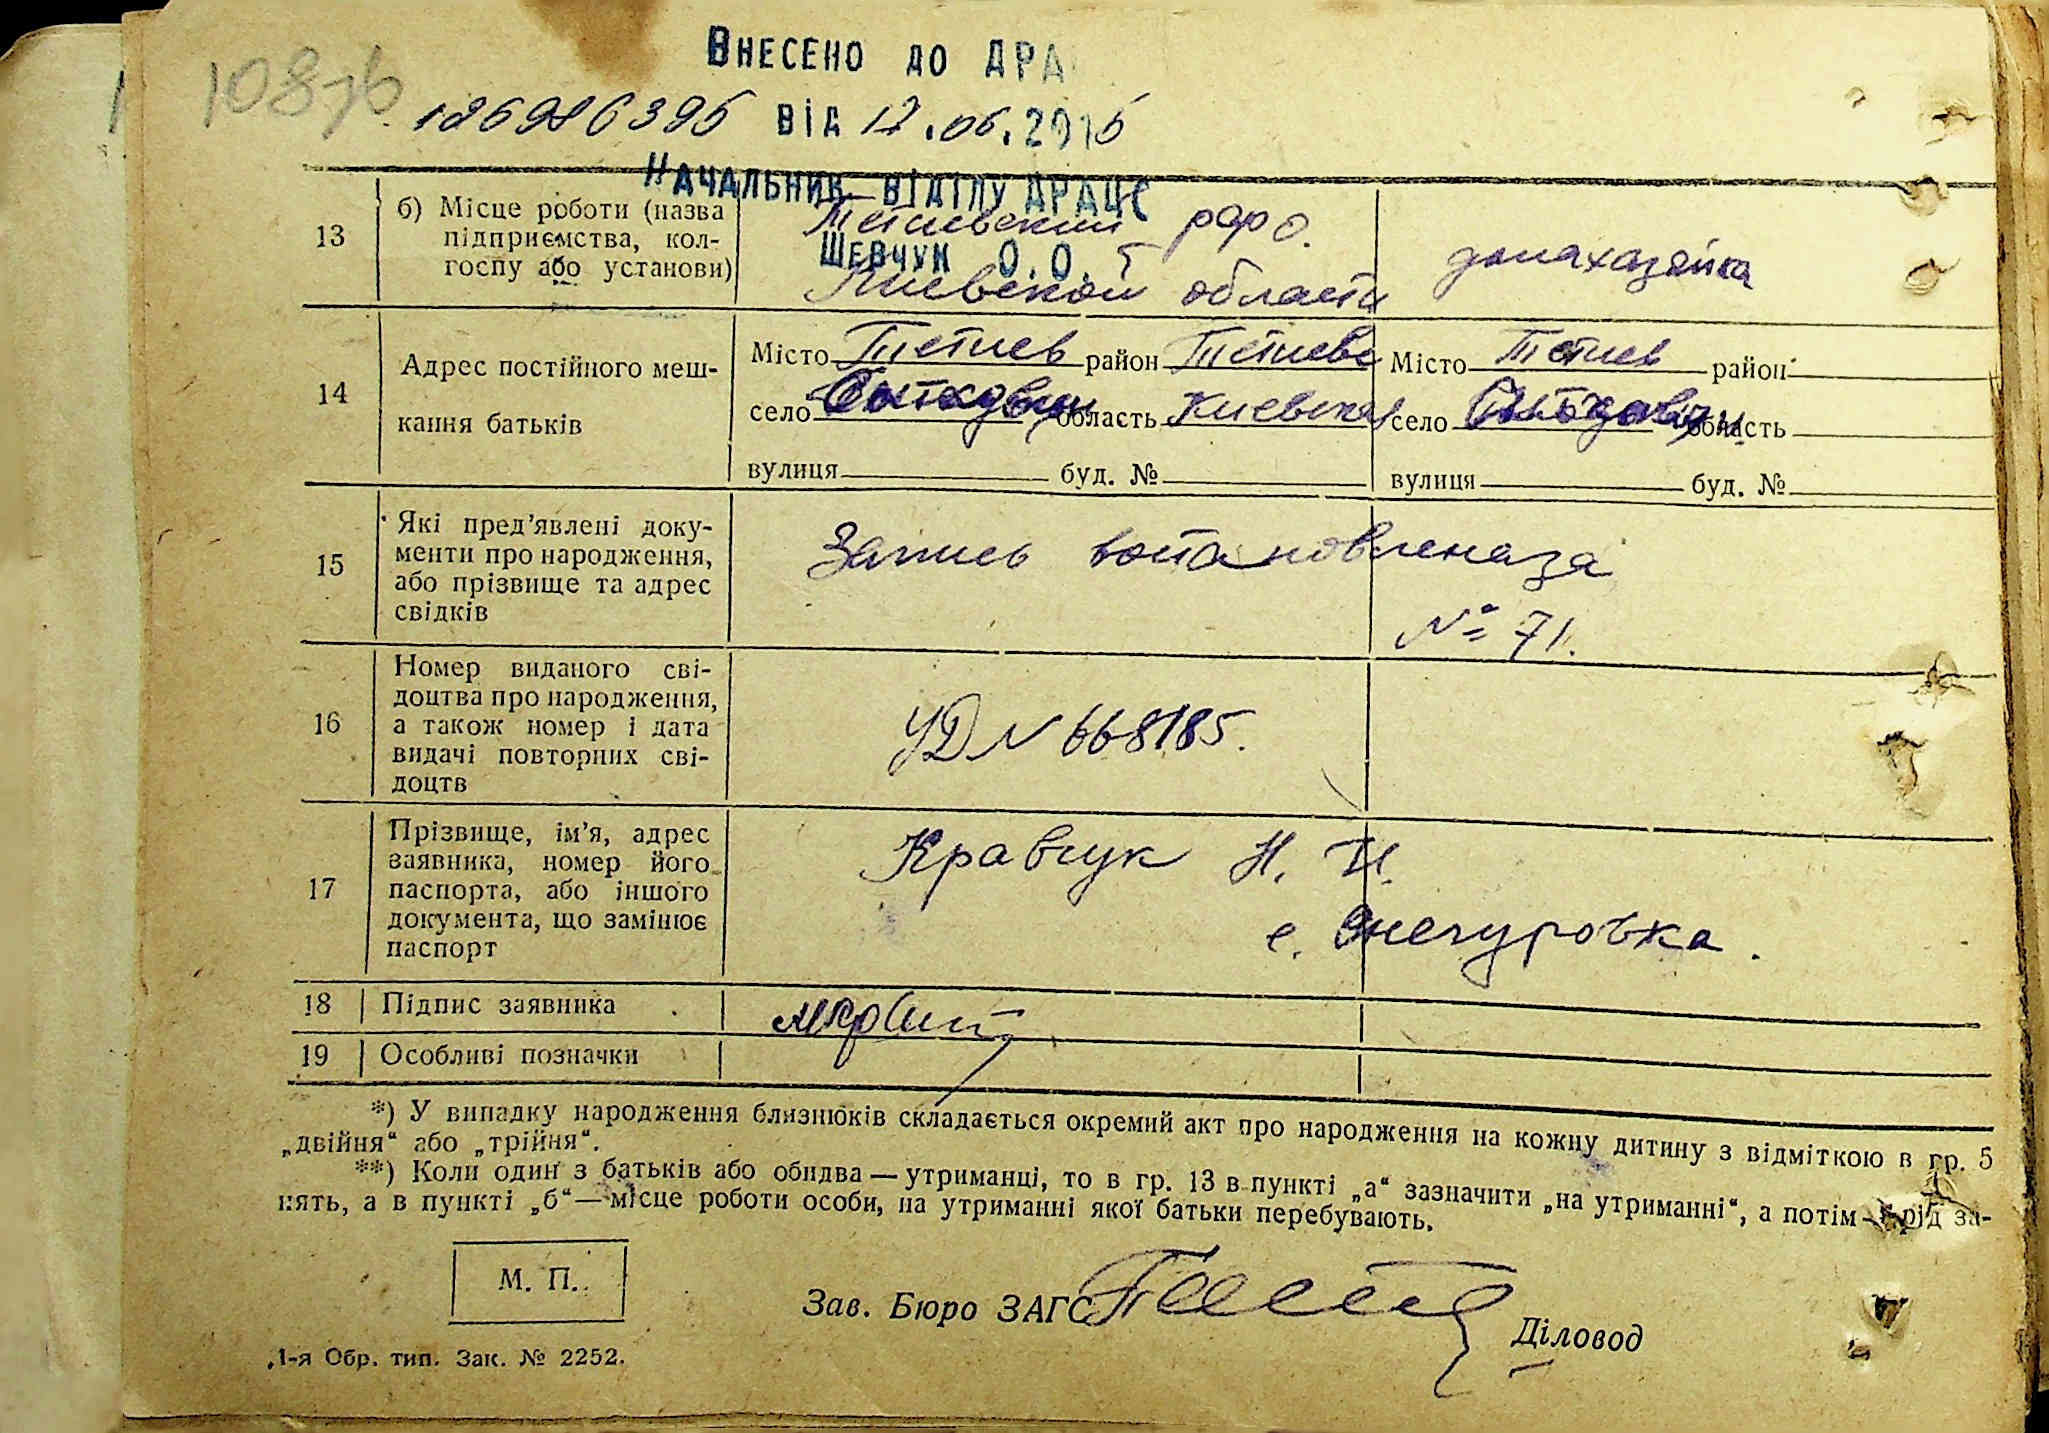 108зв
Внесено до ДРА
126986395 від 12.06.2015
Начальник відділу ДРАЦС
Шевчук О.О.
13
б) Місце роботи (назва
підприємства, кол-
госпу або установи)
Тетиевский
Киевской области
домахазяйка
14
Адрес постійного меш-
кання батьків
Місто Тетиев район Тетиевс
село область Киевская
вулиця буд. №
Місто Тетиев район
село область
вулиця буд. №
15
Які пред’явлені доку-
менти про народження,
або прізвище та адрес
свідків
Запись
№ 71.
16
Номер виданого сві-
доцтва про народження,
а також номер і дата
видачі повторних сві-
доцтв
УД № 668185.
17
Прізвище, ім’я, адрес
заявника, номер його
паспорта, або іншого
документа, що замінює
паспорт
Кравчук Н. И.
с. Снегуровка.
18 Підпис заявника
19 Особливі позначки
*) У випадку народження близнюків складається окремий акт про народження на кожну дитину з відміткою в гр. 5
„двійня“ або „трійня“.
**) Коли один з батьків або обидва — утриманці, то в гр. 13 в пункті „а“ зазначити „на утриманні“, а потім рід за-
нять, а в пункті „б“ — місце роботи особи, на утриманні якої батьки перебувають.
М. П.
Зав. Бюро ЗАГС
Діловод
1-я Обр. тип. Зак. № 2252.